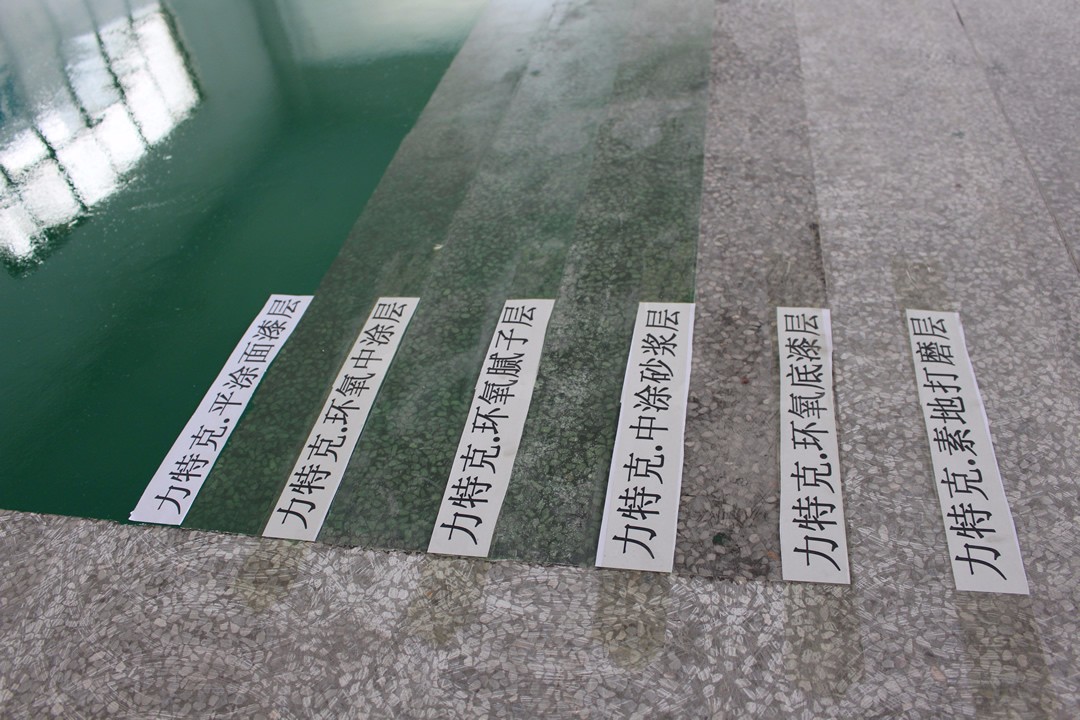 力特克.平涂面漆层
力特克.环氧中涂层
力特克.环氧腻子层
力特克.中涂砂浆层
力特克.环氧底漆层
力特克.素地打磨层